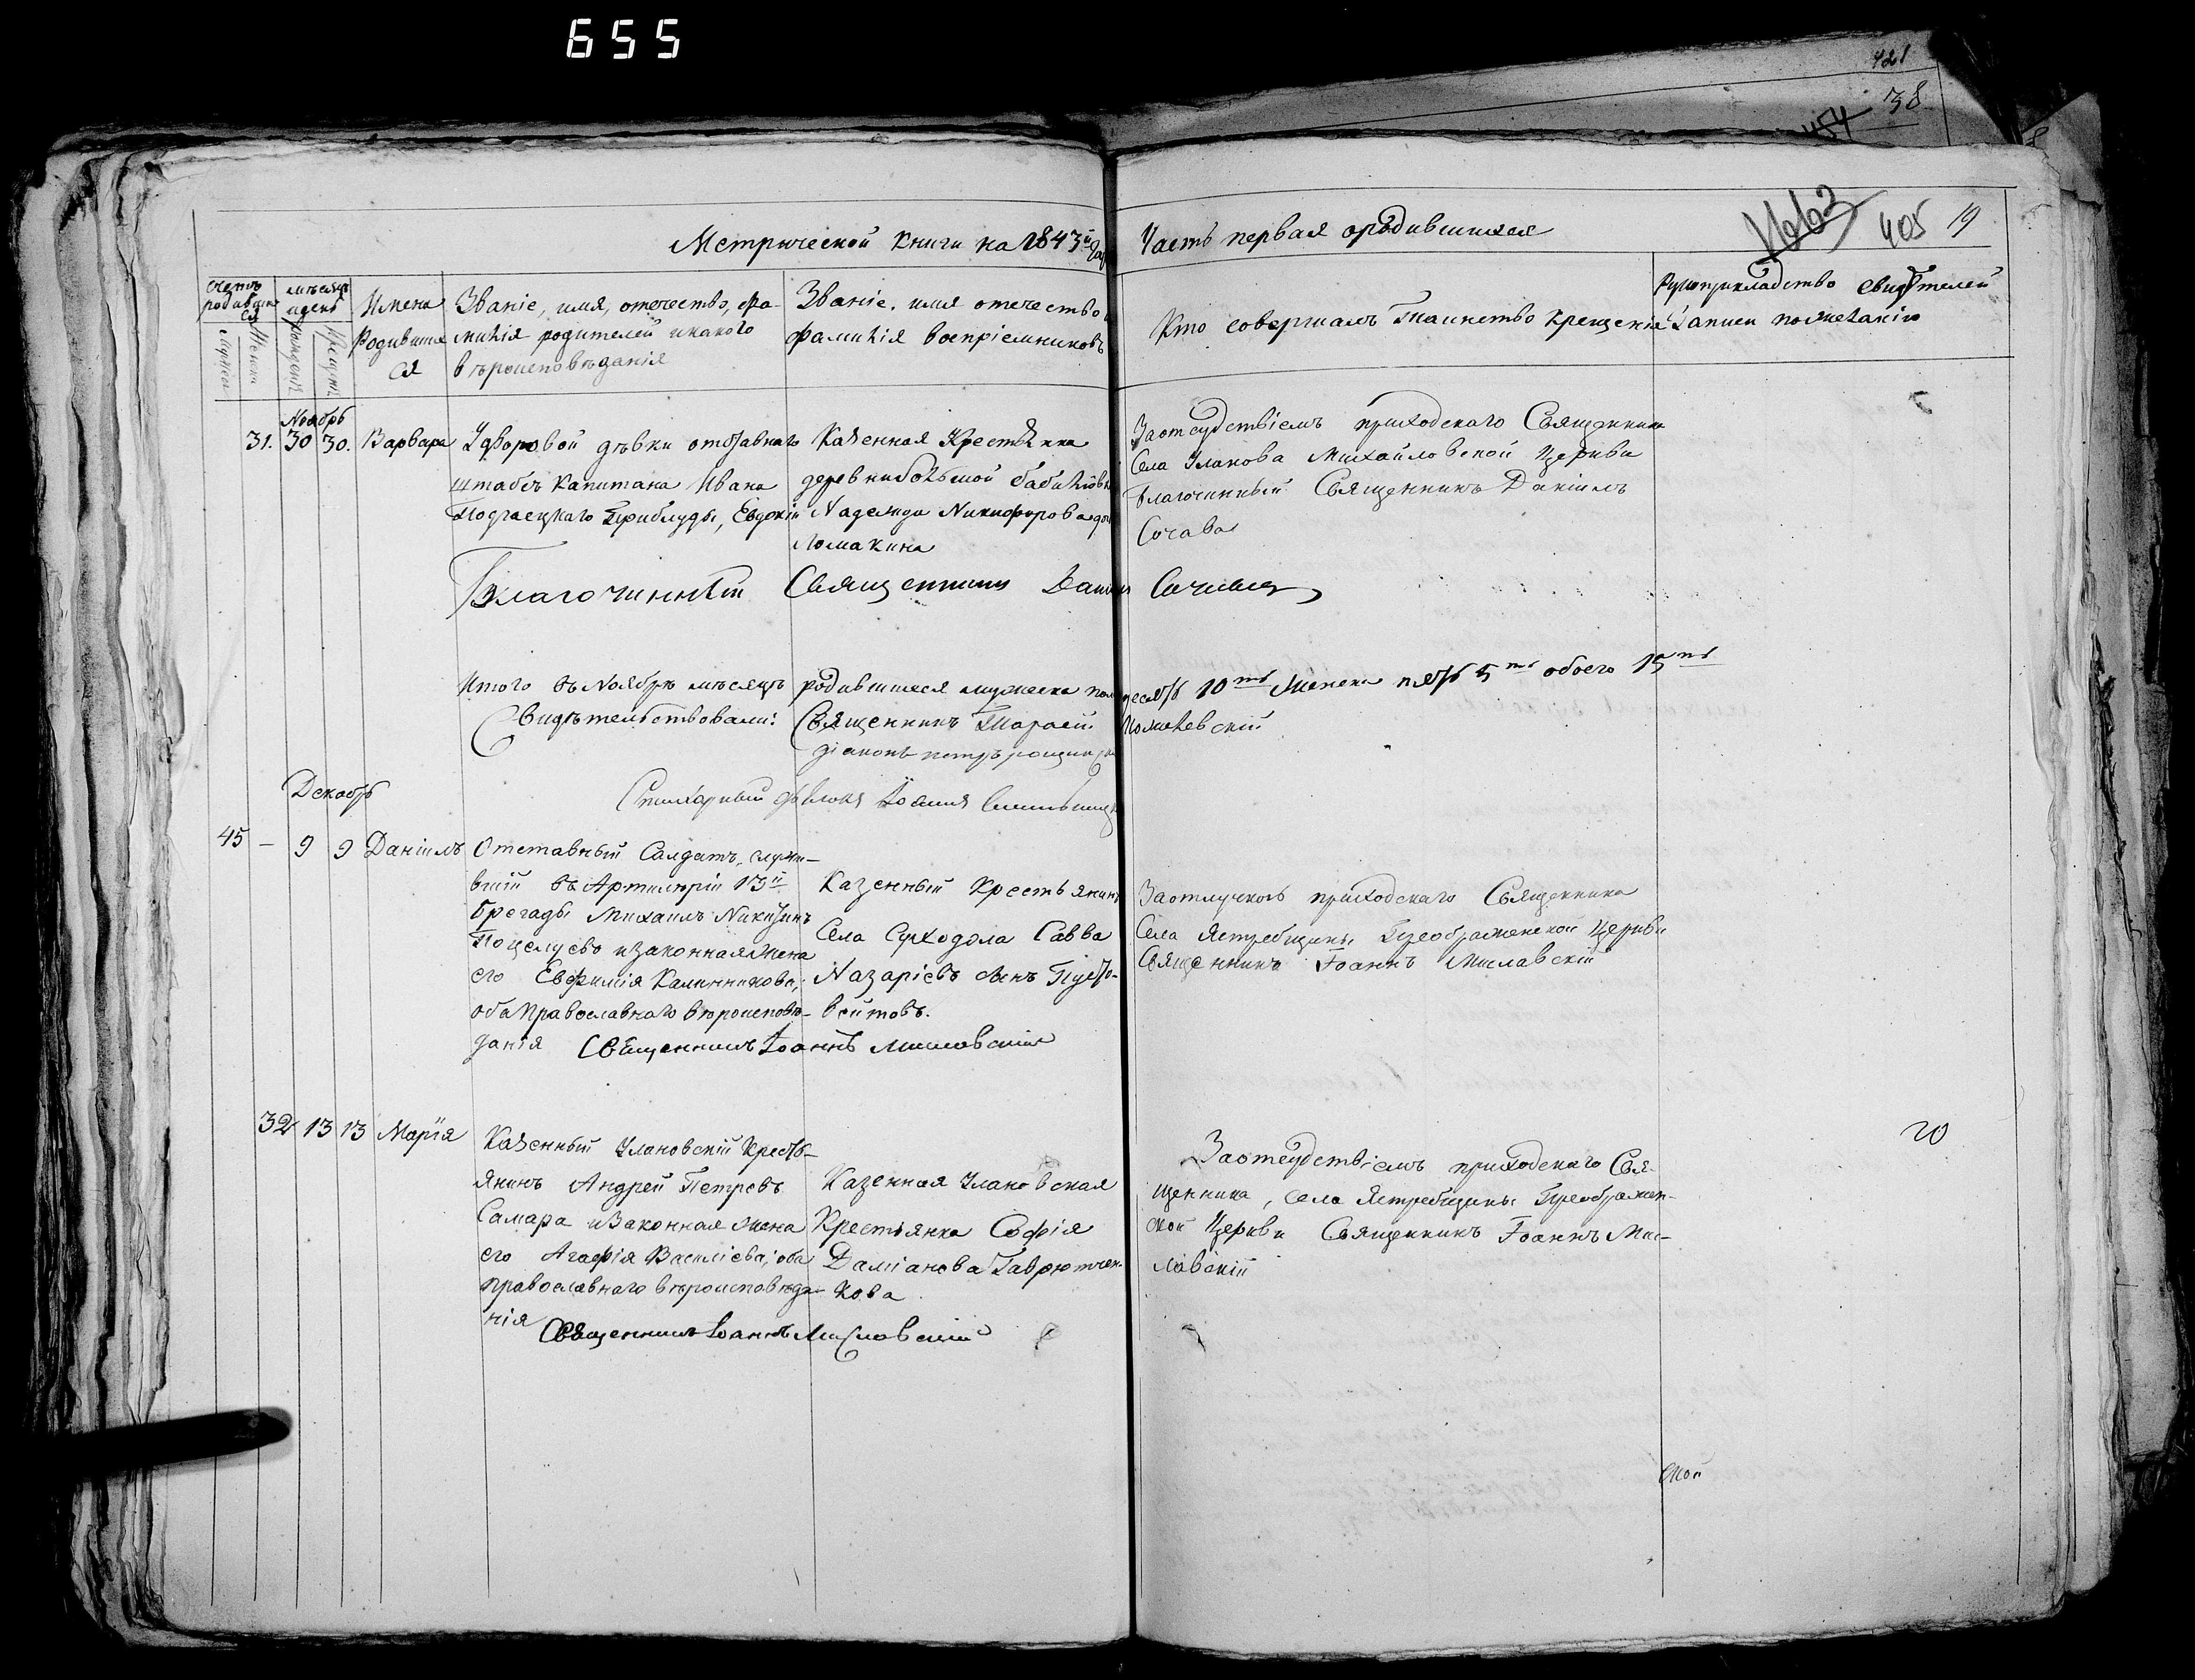 655
421
38
454
1663 405 19
Метрической книги на 1843й год
Часть первая ородившихся
счетъ родившихся
мѣсяцъ и день
Имена Родившихся
Званіе, имя, отечество, фа-
милія родителей икакого
вѣроисповѣданія
Званіе, имя отечество и
фамилія воспріемниковъ
Кто совершалъ Таинство крещенія
Рукоприкладство свидѣтелей
записи пожеланію
Ноябрь
31. 30 30. Варвара
Удворовой дѣвки отставнаго
штабсъ капитана Ивана
Подгаецкаго Приблуды, Евдокіи
Казенная Крестьянка
деревни большой
Надежда Никифорова дочь
Ломакина
Заотсудствіемъ приходскаго Священника
Села Уланова Михайловской Церкви
Благочинный Священникъ Даніилъ
Сочава
Благочинный Священникъ Даніилъ Сочава
Итого въ Ноябрѣ мѣсяцѣ родившихся мужеска пола десять 10ть женска пять 5ть обоего 15ть
Свидѣтельствовали: Священникъ Тарасій
діаконъ петръ
Декабрь
45 – 9 9 Даніилъ
Отставный Салдатъ, служи-
вшій въ Артилюріи 13й
бригады Михаилъ Никитинъ
Поцелуевъ изаконная жена
его Евфимія Калинникова,
оба православнаго вѣроисповѣ-
данія
Казенный Крестьянинъ
Села Суходола Савва
Назаріевъ сынъ Пусто-
войтовъ.
Заотлучкою приходскаго Священника
Села Ястребщины Преображенской Церкви
Священникъ Іоаннъ Миславскій
Священникъ Іоаннъ Миславскій
32 13 13 Марія
Казенный Улановскій Кресть-
янинъ Андрей Петровъ
Самара изаконная жена
его Агафія Васильева, оба
православнаго вѣроисповѣда-
нія
Казенная Улановская
Крестьянка Софія
Даміанова Гаврютчен-
кова
Заотсудствіемъ приходскаго Свя-
щенника, села Ястребщины Преображен-
ской Церкви Священникъ Іоаннъ Мис-
лавскій
20
Священникъ Іоаннъ Миславскій
ской